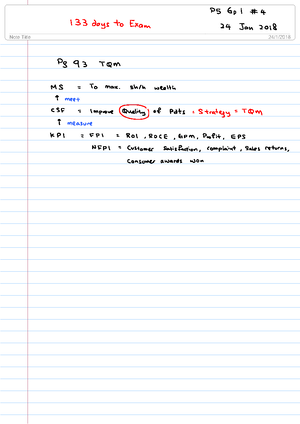 P5 Gp 1 #4
133 days to Exam
24 Jan 2018
More Take
24/1/2018
Pg 93 TQM
MS = To max. sh/h wealth
↑ meet
CSF = improve Quality of Pdts = Strategy = TQM
↑ measure
KPI = FPI = ROI, ROCE, GPM, Profit, EPS
NFPI = Customer Satisfaction, complaint, Sales returns,
Consumer awards won